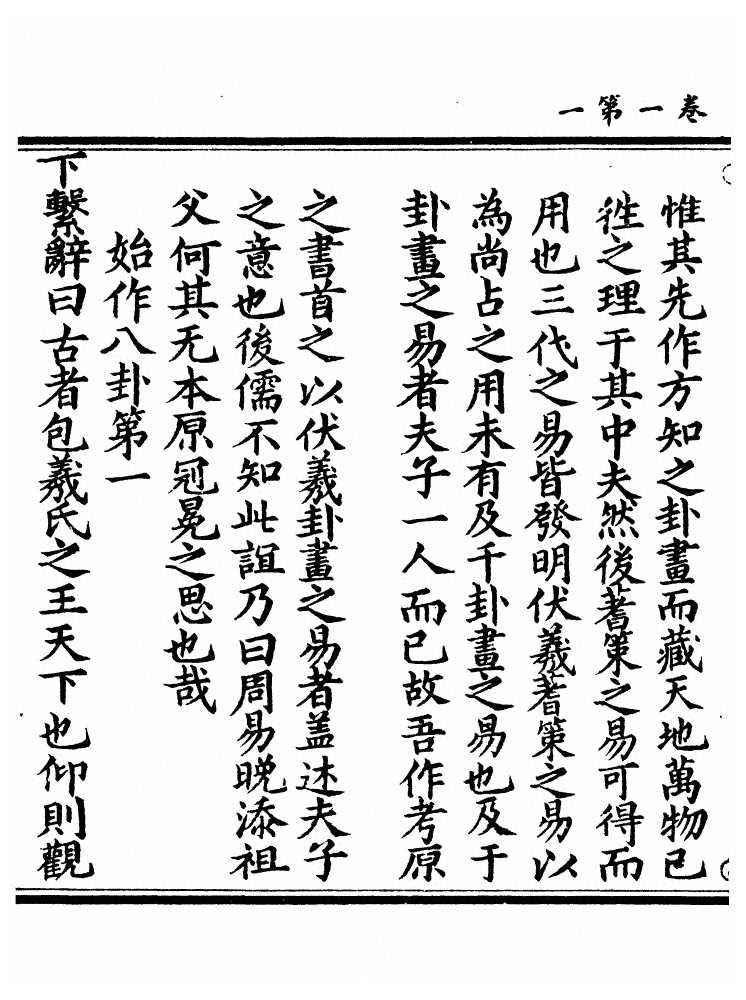 卷一第一
惟其先作方知之卦畫而藏天地萬物已
徃之理于其中夫然後蓍策之易可得而
用也三代之易皆發明伏羲蓍策之易以
為尚占之用未有及于卦畫之易也及于
卦畫之易者夫子一人而已故吾作考原
之書首之以伏羲卦畫之易者盖述夫子
之意也後儒不知此誼乃曰周易晚添祖
父何其无本原冠冕之思也哉
始作八卦第一
下繫辭曰古者包羲氏之王天下也仰則觀